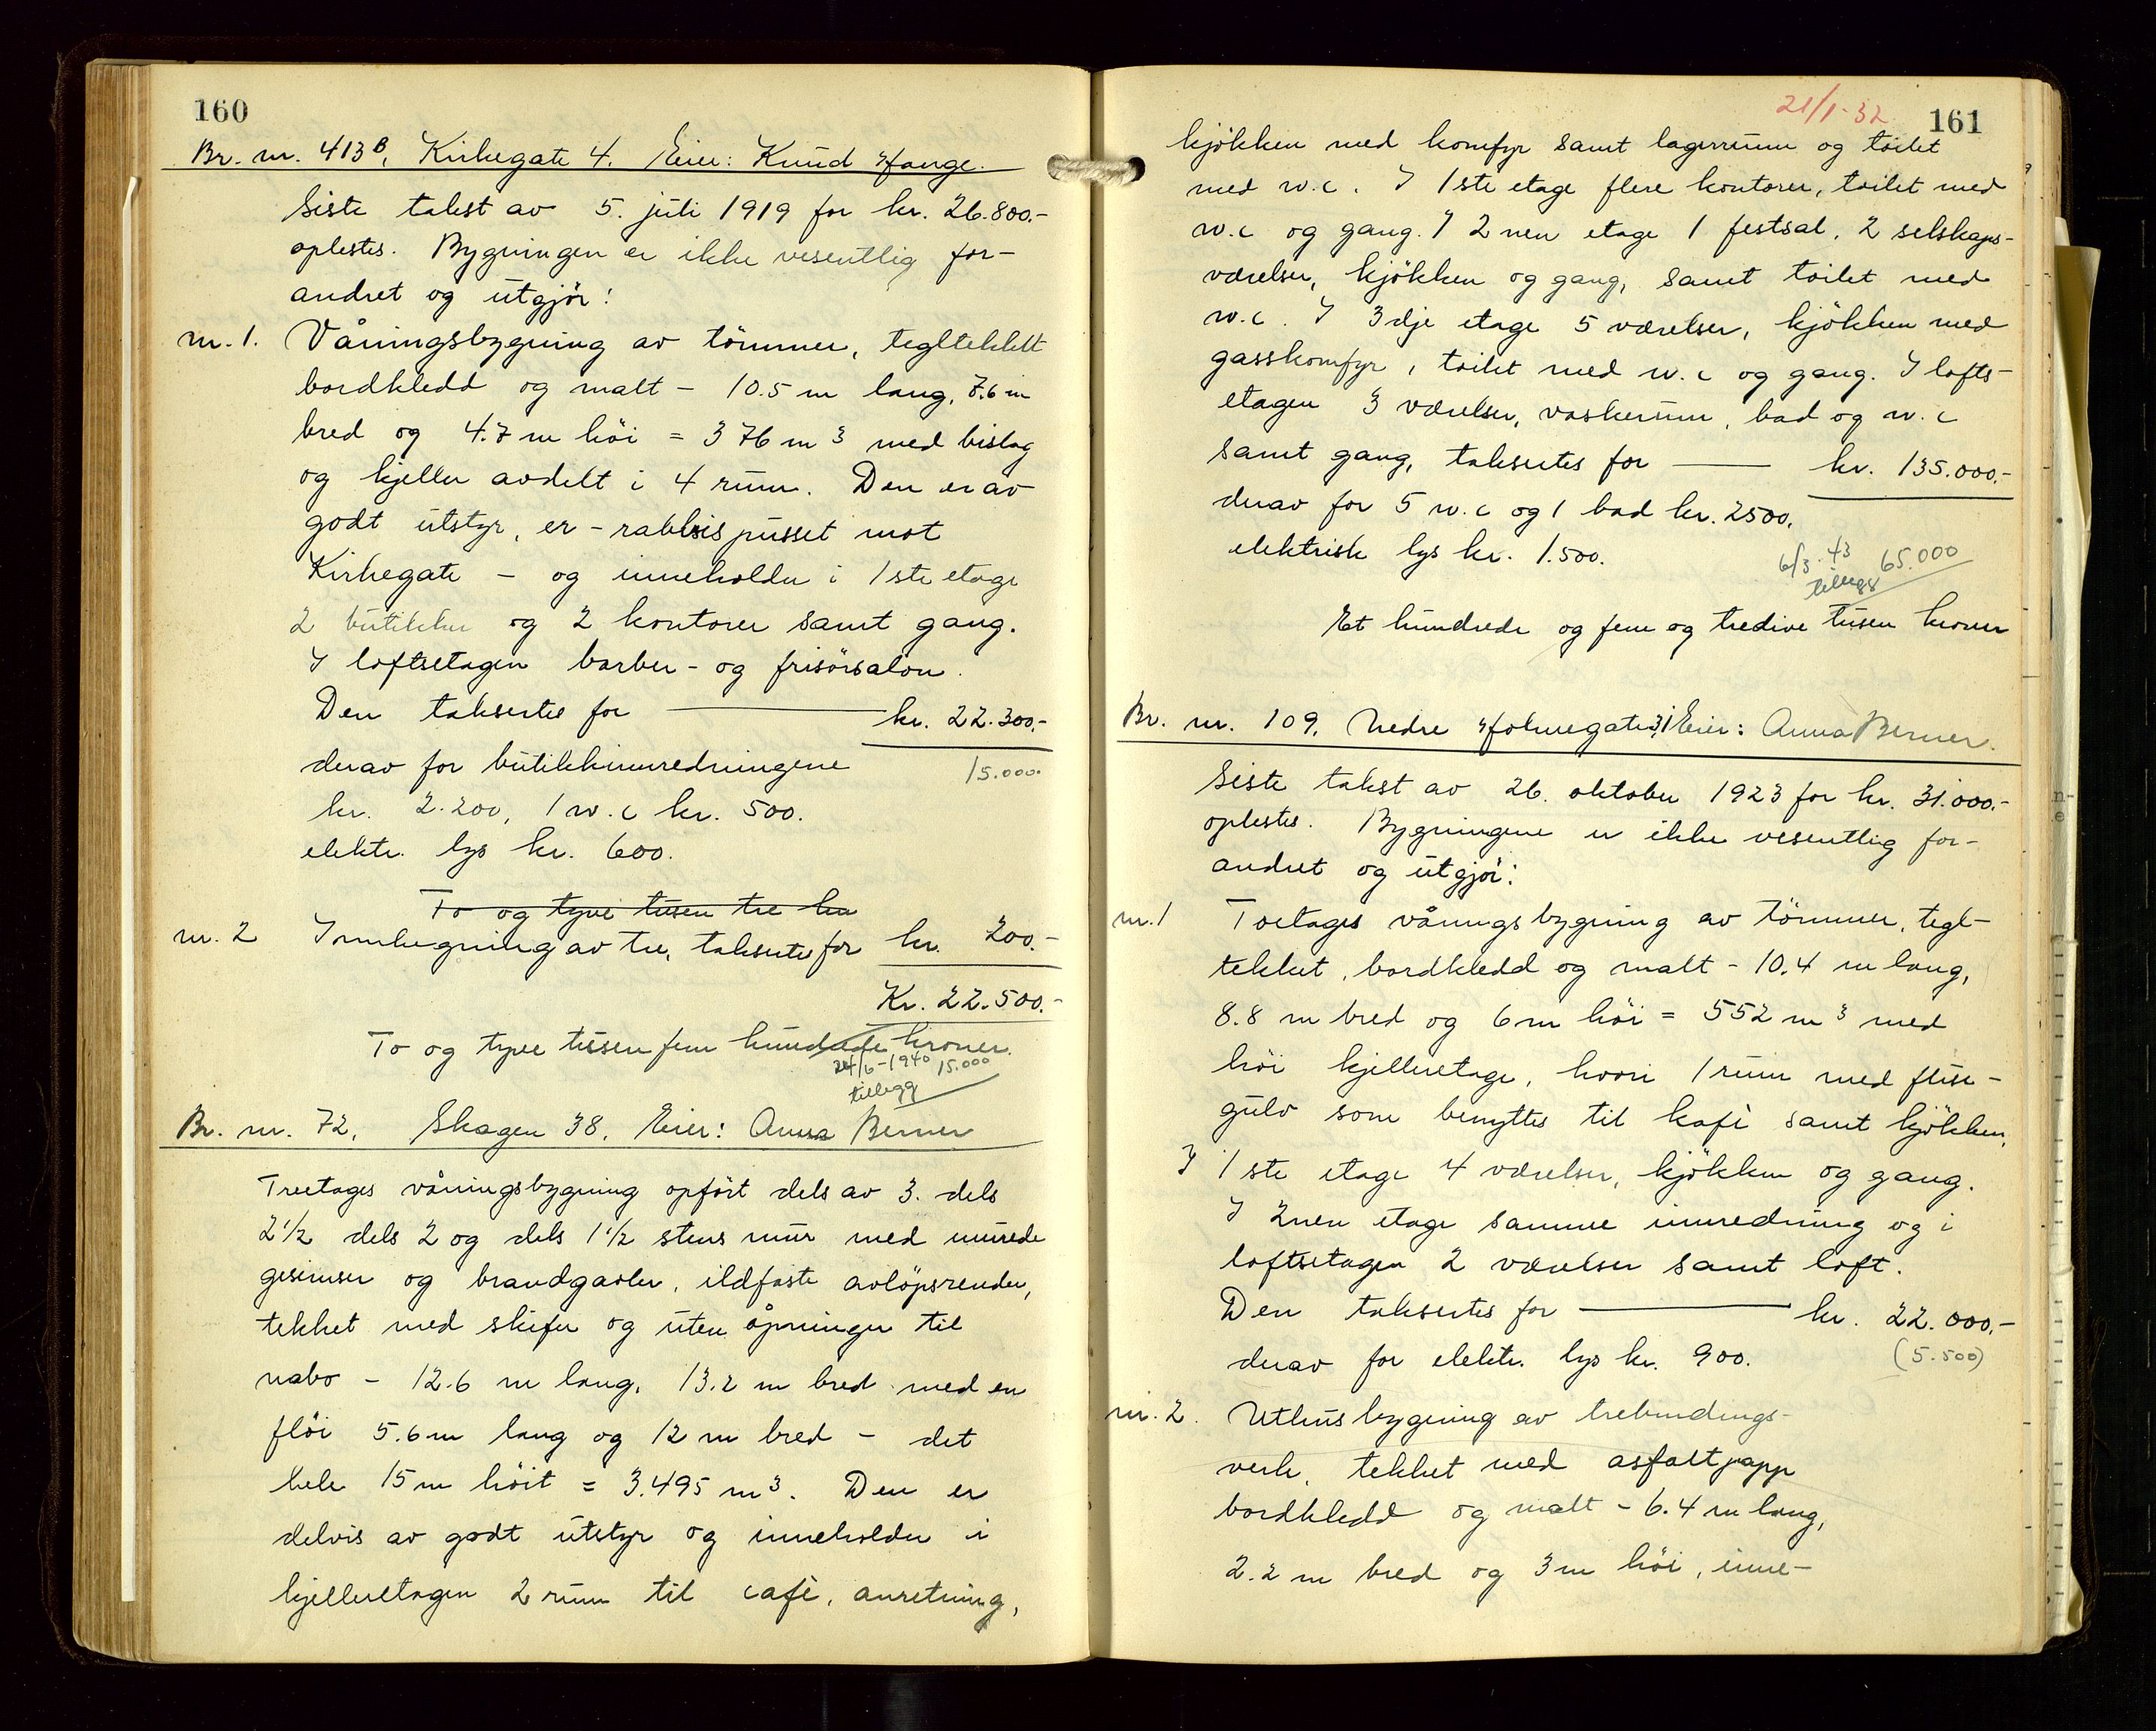 160
Br. nr. 413B, Kirkegate 4. Eier: Knud Hauge.
Siste takst av 5. juli 1919 for kr. 26.800.-
oplestes. Bygningen er ikke vesentlig for-
andret og utgjör:
nr. 1. Våningsbygning av tömmer, tegltekket
bordkledd og malt - 10.5 m lang, 7.6 m
bred og 4.7 m höi = 376 m3 med bislag
og kjeller avdelt i 4 rum. Den er av
godt utstyr, er - rabbispusset mot
Kirkegate - og inneholder i 1ste etage
2 butikker og 2 kontorer samt gang.
I loftsetagen barber- og frisörsalon.
Den taksertes for — kr. 22.300.-
derav for butikkinnredningene 15.000.-
kr. 2.200, 1 w.c kr. 500.
elektr. lys kr. 600.
To og tyve tusen tre hu
nr. 2 Innhegning av tre, taksertes for kr. 200.-
Kr. 22.500.-
To og tyve tusen fem hundrede kroner.
24/6-1940 15.000
tillegg
Br. nr. 72, Skagen 38. Eier: Anna Berner
Treetages våningsbygning opfört dels av 3. dels
2 1/2 dels 2 og dels 1 1/2 stens mur med murede
gesimser og brandgavler, ildfaste avlöpsrender,
tekket med skifer og uten åpninger til
nabo - 12.6 m lang, 13.2 m bred med en
flöi 5.6 m lang og 12 m bred - det
hele 15 m höit = 3.495 m3. Den er
delvis av godt utstyr og inneholder i
kjelleretagen 2 rum til cafè, anretning,
21/1-32 161
kjökken med komfyr samt lagerrum og toilet
med w.c. I 1ste etage flere kontorer, toilet med
w.c og gang. I 2nen etage 1 festsal, 2 selskaps-
værelser, kjökken og gang, samt toilet med
w.c. I 3dje etage 5 værelser, kjökken med
gasskomfyr, toilet med w.c og gang. I lofts-
etagen 3 værelser, vaskerum, bad og w.c
samt gang, taksertes for — kr. 135.000.-
derav for 5 w.c og 1 bad kr. 2500.
elektrisk lys kr. 1.500.
6/3.43 65.000
tillegg
Et hundrede og fem og tredive tusen kroner
Br. nr. 109, Nedre Holmegate 31, Eier: Anna Berner.
Siste takst av 26. oktober 1923 for kr. 31.000.-
oplestes. Bygningene er ikke vesentlig for-
andret og utgjör:
nr. 1 Toetages våningsbygning av tömmer, tegl-
tekket, bordkledd og malt - 10.4 m lang,
8.8 m bred og 6 m höi = 552 m3 med
höi kjelleretage, hvori 1 rum med flise-
gulv som benyttes til kafè samt kjökken,
I 1ste etage 4 værelser, kjökken og gang.
I 2nen etage samme innredning og i
loftsetagen 2 værelser samt loft.
Den taksertes for — kr. 22.000.-
derav for elektr. lys kr. 900. (5.500)
nr. 2. Uthusbygning av trebindings-
verk, tekket med asfaltpapp
bordkledd og malt - 6.4 m lang,
2.2 m bred og 3 m höi, inne-